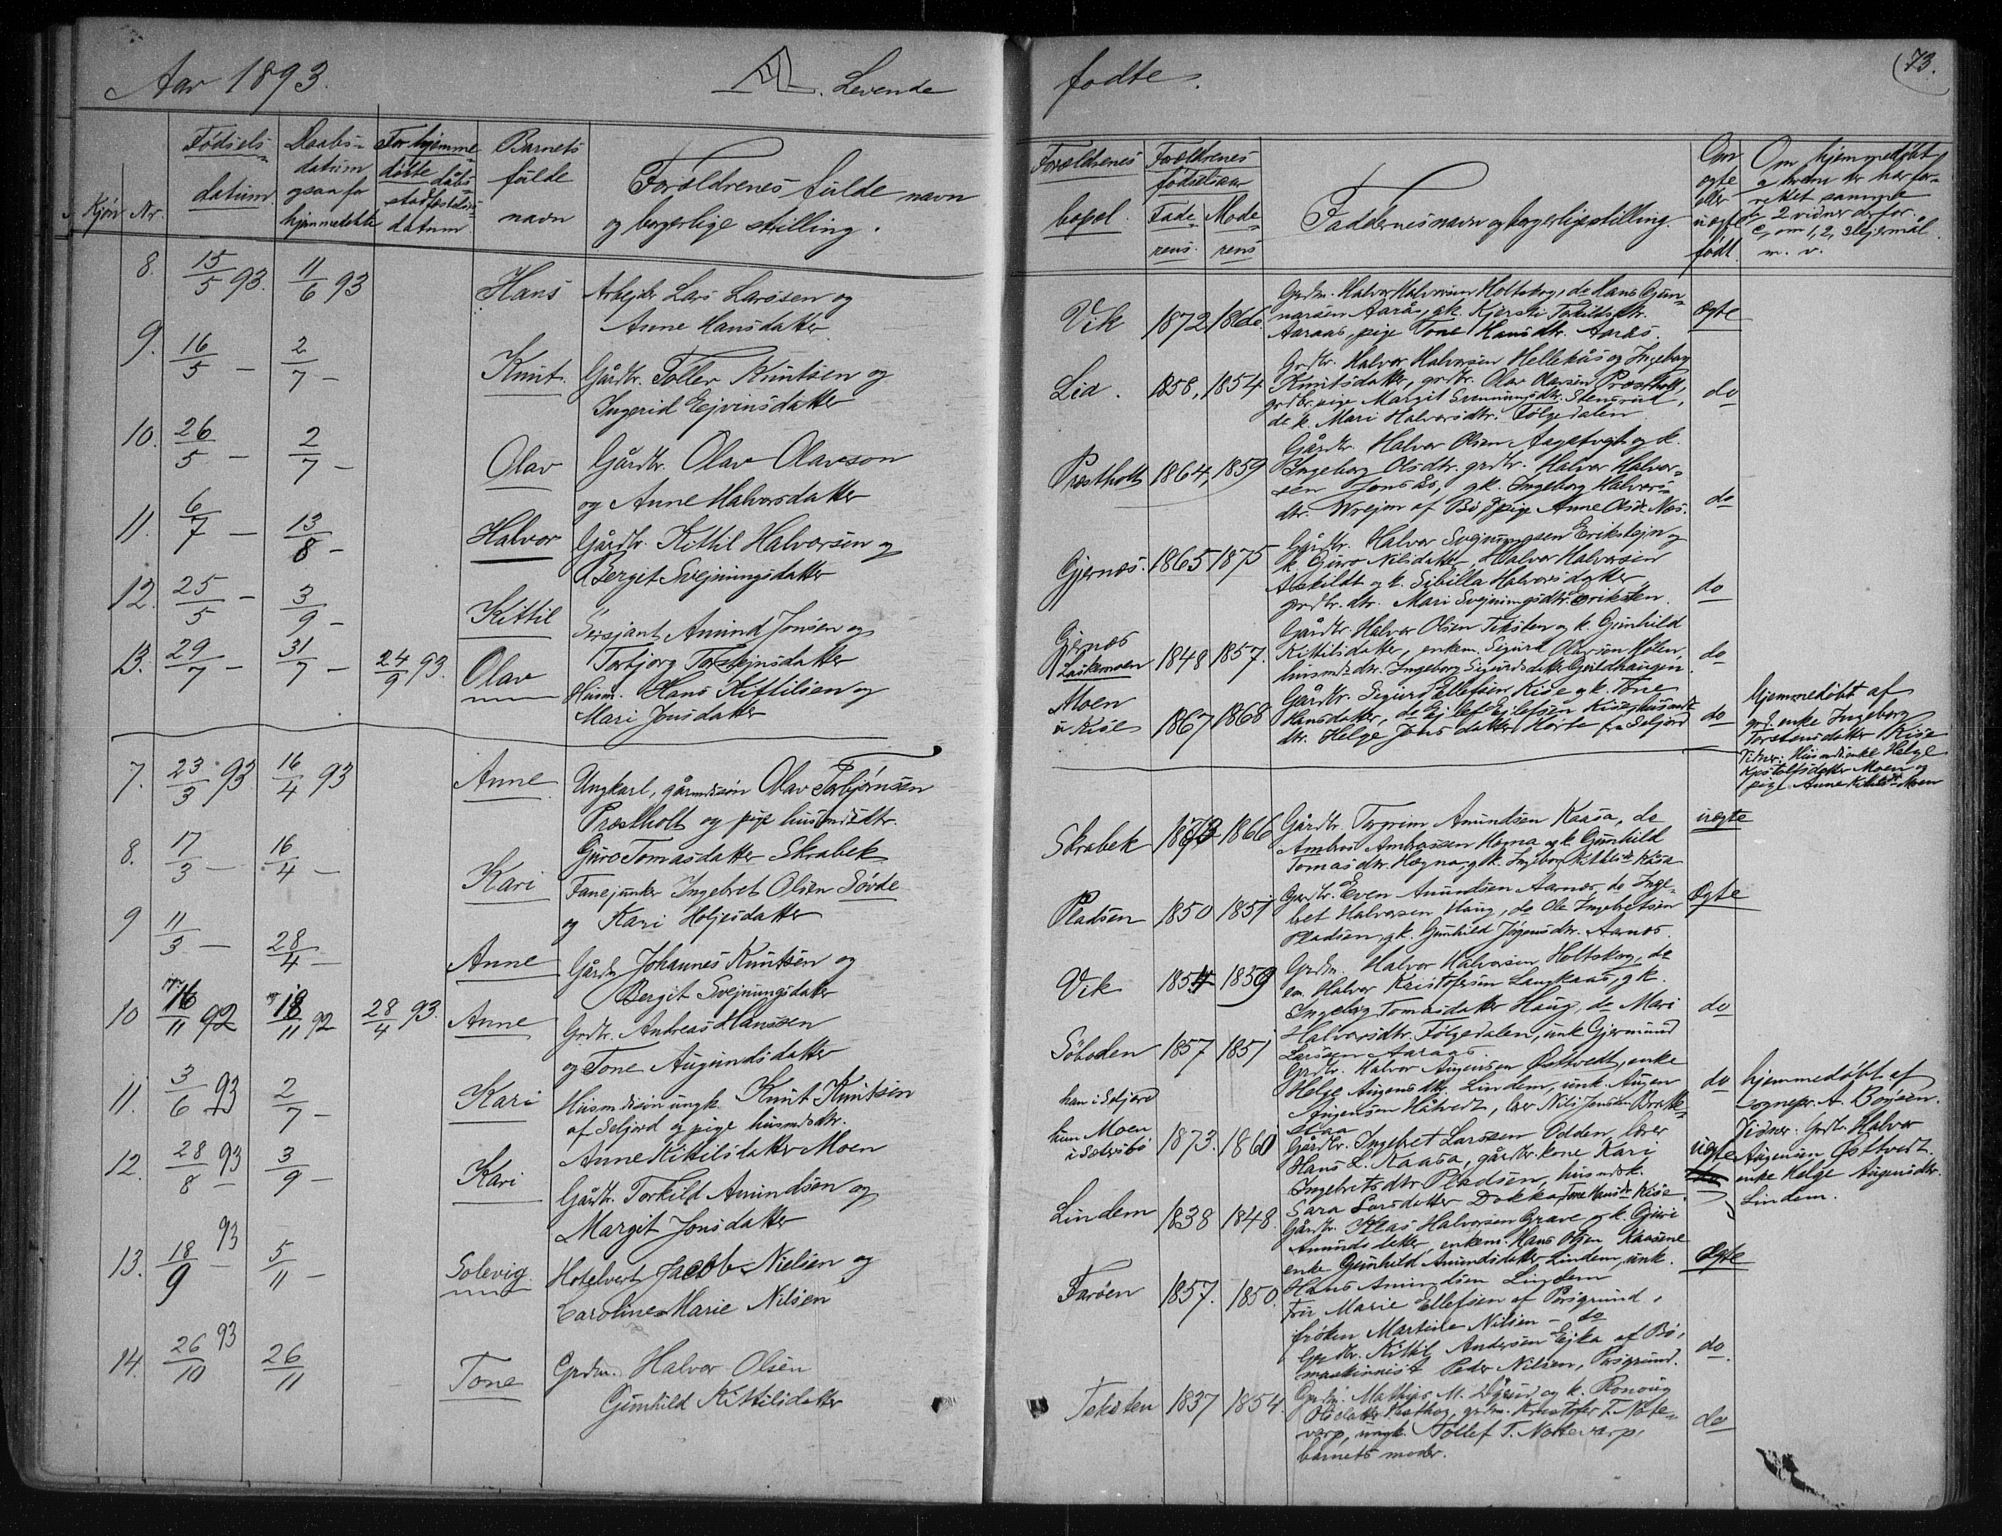 Aar 1893.
Levende
fødte.
(73.
Kjön
Nr.
Fødsels-
datum
Daabs-
datum
ogsaa for
hjemmedøbte
For hjemme
døbte dåbs
stadfæstelses
datum
Barnets
fulde
navn
Forældrenes fulde navn
og borgerlige stilling.
Forældrenes
bopel.
Forældrenes
fødselsaar
Fade-
rens.
Mode-
rens
Faddernes navn og borgerlige stilling.
Om
ægte
eller
uægte
født.
Om hjemmedøbt
og hvem der har for-
rettet, samgte
de 2 vidner derfor.
om 1, 2, 3 lejermål
m. v.
8.
15/5 93.
11/6 93
Hans
Arbejder Lars Larssen og
Anne Hansdatter
Vik
1872
1866.
Grdm. Halvor Halvorsen Holtskog, do Hans Gun-
narsen Aarås, gk. Kjersti Torkildsdtr.
Aaraas, pige Tone Hansdtr. Aarås
Ægte
9.
16/5 -
2/7 -
Knut.
Gårdbr. Tollev Knutsen og
Ingerid Ejvinsdatter
Lia.
1858,
1854
Grdbr. Halvor Halvorsen Hellekås og Ingeborg
Knutsdatter, grdbr. Olav Olavsen Præstholt,
grdbr. pige Margit Svenungsdtr. Stensrud,
do k. Mari Halvorsdtr. Følgedalen
do
10.
26/5 -
2/7 -
Olav
Gårdbr. Olav Olavson
og Anne Halvorsdatter
Præstholt
1864,
1859
Gårdbr. Halvor Olsen Aagetvejt og k.
Ingeborg Olsdtr. grdbr. Halvor Halvor-
sen Jonsås, gk. Ingeborg Halvors-
dtr. Wrejen af Bø, pige Anne Olsdtr Nes.
do
11.
6/7 -
13/8 -
Halvor
Gårdbr. Kittil Halvorsen og
Bergit Svejnungsdatter
Gjernæs.
1865
1875
Gårdbr. Halvor Svejnungsen Erikstejn og
k. Guro Nilsdatter, Halvor Halvorsen
Askildt og k. Sibilla Halvorsdatter
grdbr. dtr. Mari Svejnungsdtr. Eriksten.
do
12.
25/5 -
3/9 -
Kittil
Sersjant Amund Jonsen og
Torbjorg Torstejnsdatter
Gjernæs
Laskemoen
1848
1857.
Gårdbr. Halvor Olsen Teksten og k. Gunhild
Kittilsdatter, enkem. Sigurd Olavson Hølen,
husmdsdtr. Ingeborg Sigurdsdatter Gvildhaugen.
do
13.
29/7 -
31/7 -
24/9 93.
Olav
Husm. Hans Kittilsen og
Mari Jonsdatter
Moen
u Kise
1867
1868
Gårdbr. Sigurd Ellefsen Kise gk. Tone
Hansdatter, do Ejlef Ejlefsen Kise, husmds
dtr. Helge Jonsdatter Horte fra Seljord
do
hjemmedøbt af
grd. enke Ingeborg
Torstensdatter Kise
Vidner: Husmdsenke Helge
Kjostolfsdatter Moen og
pige Anne Kittilsdtr Moen
7.
23/3 93
16/4 93
Anne
Ungkarl, gårmdssøn Olav Torbjørnsen
Præstholt og pige husmdsdtr.
Guro Tomasdatter Skrabek
Skrabek
1873
1866
Gårdbr. Torgrim Amundsen Kaasa, do
Ambros Ambrossen Hegna og k. Gunhild
Tomasdtr. Hægna, gk. Ingeborg Kittilsdtr Kåsa
uægte
8.
17/3 -
16/4 -
Kari
Fanejunker Ingebret Olsen Søvde
og Kari Holjesdatter
Pladsen
1850
1851
Grdbr. Even Amundsen Aarnæs, do Inge-
bret Halvorsen Haug, do Ole Ingebretsen
Pladsen, gk. Gunhild Jørgensdtr. Aarnæs.
Ægte
9
11/3 -
28/4 -
Anne
Gårdm Johannes Knutsen og
Bergit Svejnungsdatter
Vik
1854
1859
Grdm. Halvor Halvorsen Holtskog, do
em. Halvor Kristofersen Langkaas, gk.
Ingebjørg Tomasdatter Haug, do Mari
Halvorsdtr. Følgedalen, unk. Gjermund
Larssen Aaraas.
do
10
16/11 92
18/11 92
28/4 93.
Anne
Grdbr. Andreas Hanssen
og Tone Augundsdatter
Søboden
1857
1851
Grdbr. Halvor Augensen Østtvedt, enke
Helge Augensdtr. Lindem, unk. Augen
Augensen Håtvedt, lærer Nils Jensen Bratte-
staa
do
hjemmedøbt af
sognepr. A. Boyesen.
Vidner: Grdbr. Halvor
Augensen Østtvedt,
enke Helge Augensdtr.
Lindem.
11.
3/6 93
2/7 -
Kari
Husmdssøn ungk. Knut Knutsen
af Seljord og pige husmdsdtr.
Anne Kittilsdatter Moen
han i Seljord
hun Moen
i Sætersbø
1873.
1860
Gårdbr. Ingebret Larssen Odden, lærer
Hans L. Kaasa, gårdbr. kone Kari
Ingebretsdtr Pladsen, husmdsk.
Sara Larsdatter Dokka, Tone Hansdtr Kise.
uægte
12.
28/8 93
3/9 -
Kari
Gårdbr. Torkild Amundsen og
Margit Jonsdatter
Lindem
1838
1848.
Gårdbr. Klas Halvorsen Grave og k. Guri
Amundsdatter, enkem. Hans Olsen Kaasene
enke Gunhild Amundsdatter Lindem, unk.
Hans Amundsen Lindem
Ægte
13.
18/9 93 -
5/11 -
Solevig
Hotelvert Jacob Nielsen og
Caroline Marie Nilsen
Farøen
1857.
1850.
Fru Marie Ellefsen af Porsgrund,
frøken Martine Nilsen - do
Grdbr. Kittil Andersen Ejka af Bø,
maskinnist Peder Nilsen, Porsgrund.
do
14.
26/10 93
26/11
Tone
Grdm. Halvor Olsen
Gunhild Kittilsdatter
Teksten
1837
1854
Grdm. Mathjis M. og k. Ronoug
Olsdatter, grdm. Kristofer T. Note-
varp, ungk. Tollef T. Nottevarp,
barnets moder.
do